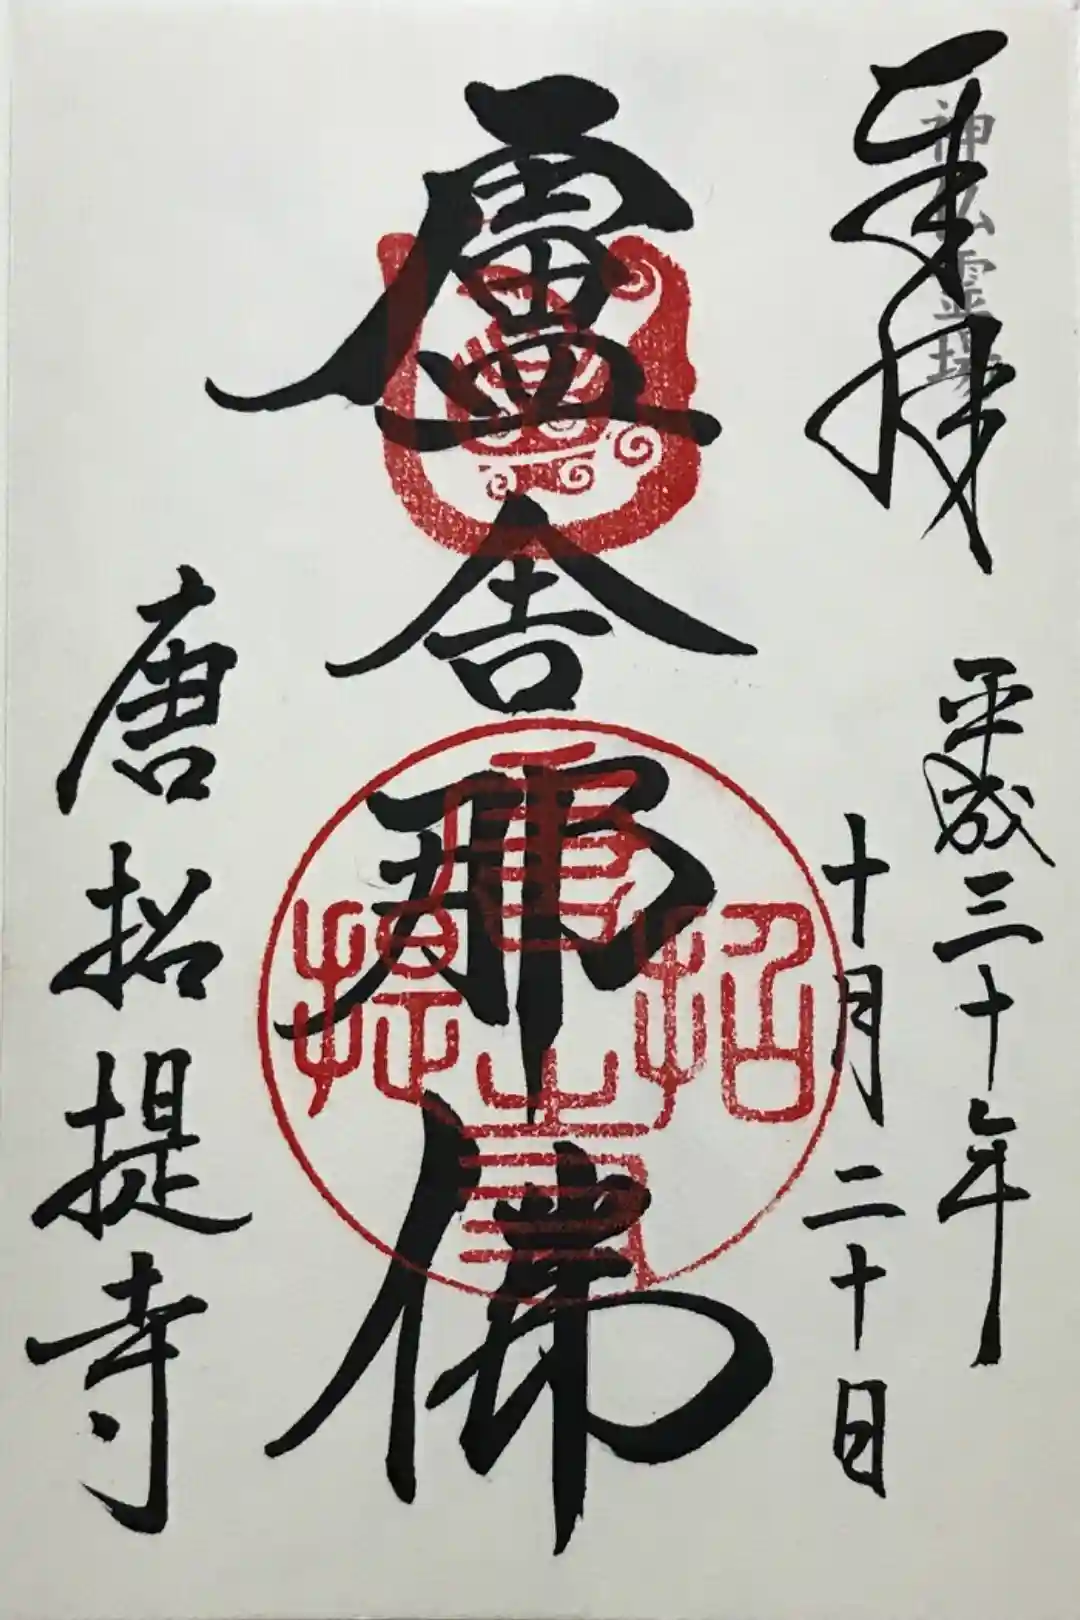 奉拝
神仏霊場
平成三十年
十月二十日
盧舎那佛
唐招提寺